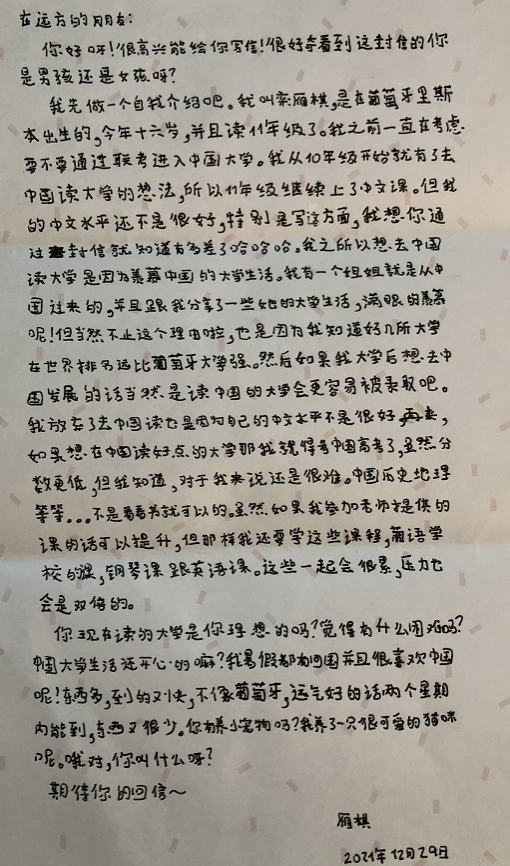 在远方的朋友：
你好呀！很高兴能给你写信！很好奇看到这封信的你
是男孩还是女孩呀？
我先做一个自我介绍吧。我叫栾雁棋，是在葡萄牙里斯
本出生的，今年十六岁，并且读11年级了。我之前一直在考虑
要不要通过联考进入中国大学。我从10年级开始就有了去
中国读大学的想法，所以11年级继续上了中文课。但我
的中文水平还不是很好，特别是写这方面，我想你通
过封信就知道有多差了哈哈哈。我之所以想去中国
读大学是因为羡慕中国的大学生活。我有一个姐姐就是从中
国过来的，并且跟我分享了一些她的大学生活，满眼的羡慕
呢！但当然不止这个理由啦，也是因为我知道好几所大学
在世界排名远比葡萄牙大学强。然后如果我大学后想去中
国发展的话当然是读中国的大学会更容易被录取吧。
我放弃了去中国读也是因为自己的中文水平不是很好，
如果想在中国读好点的大学那我就得考中国高考了，虽然分
数更低，但我知道，对于我来说还是很难。中国历史地理
等等...不是看看书就可以的。虽然如果我参加老师提供的
课的话可以提升，但那样我还要学这些课程，葡语学
校的课，钢琴课跟英语课。这些一起会很累，压力也
会是双倍的。
你现在读的大学是你理想的吗？觉得有什么困难吗？
中国大学生活还开心的嘛？我暑假都有回国并且很喜欢中国
呢！东西多，到的又快，不像葡萄牙，运气好的话两个星期
内能到，东西又很少。你有养小宠物吗？我养了一只很可爱的猫咪
呢。哦对，你叫什么呀？
期待你的回信～
雁棋
2021年12月29日